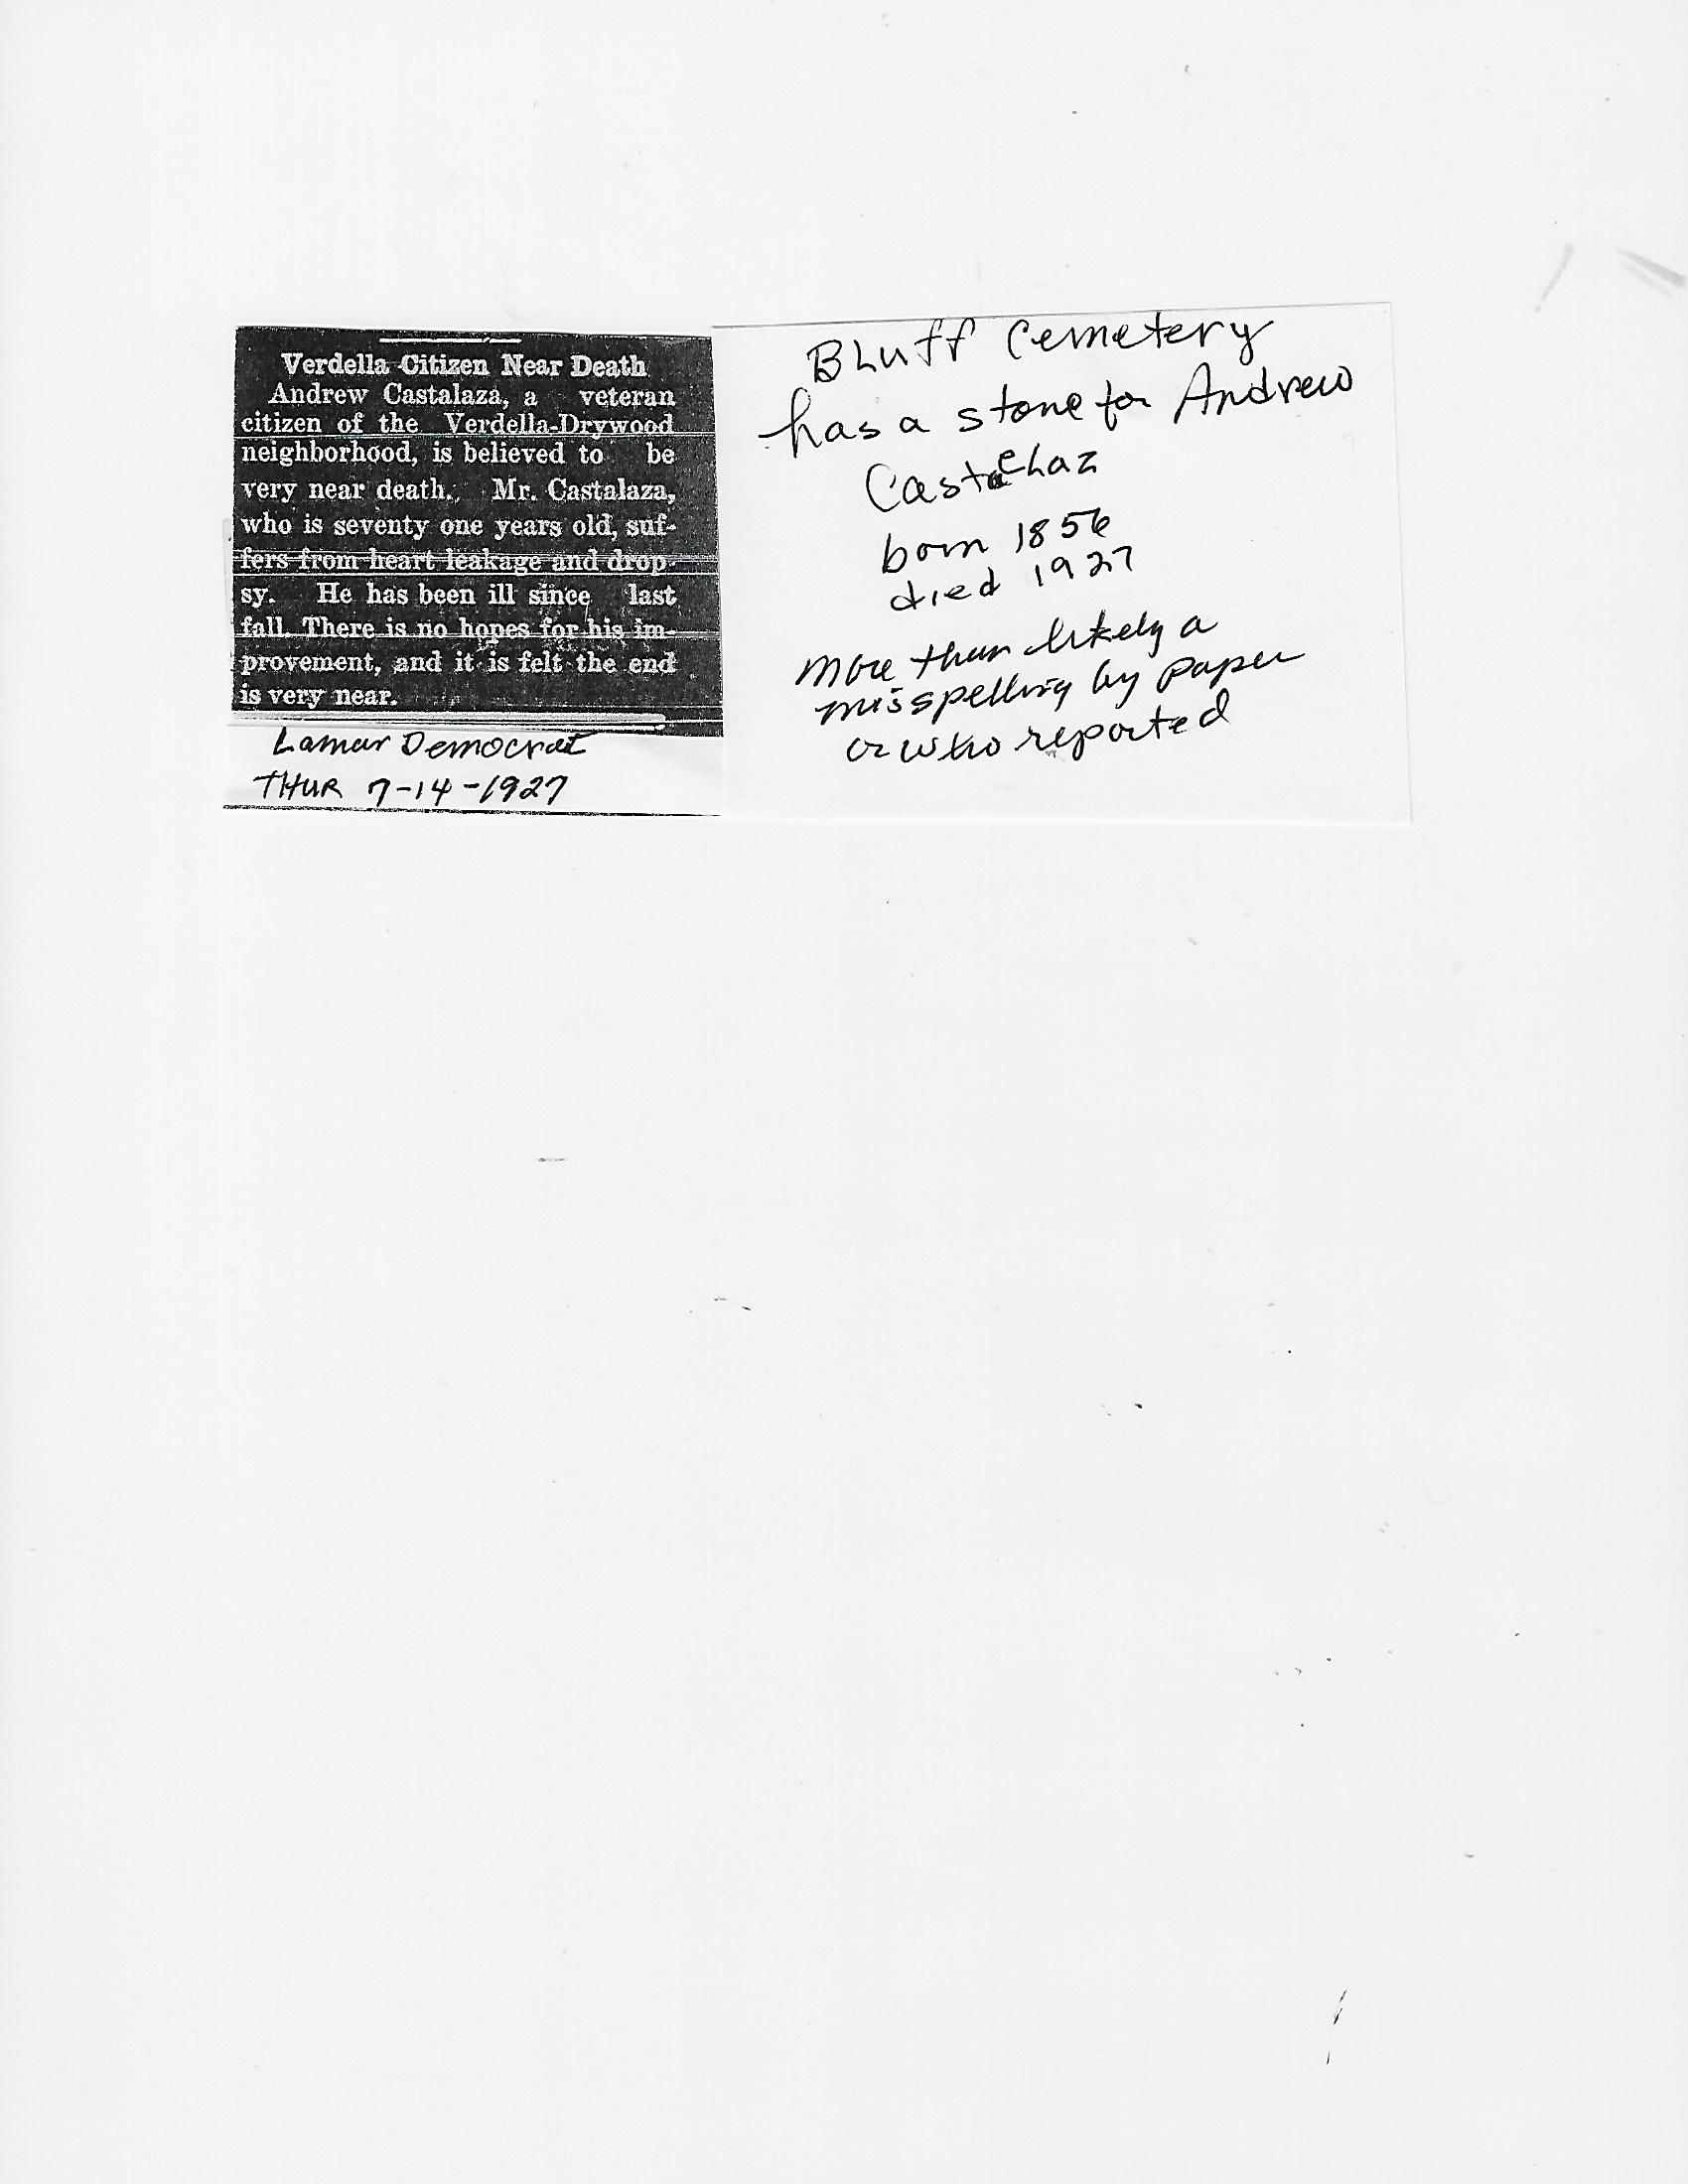 Verdella Citizen Near Death
Andrew Castalaza, a veteran
citizen of the Verdella-Drywood
neighborhood, is believed to be
very near death. Mr. Castalaza,
who is seventy one years old, suf-
fers from heart leakage and drop-
sy. He has been ill since last
fall. There is no hopes for his im-
provement, and it is felt the end
is very near.
Lamar Democrat
THUR 7-14-1927
Bluff Cemetery
has a stone for Andrew
born 1856
died 1927
more than likely a
misspelling by paper
or who reported